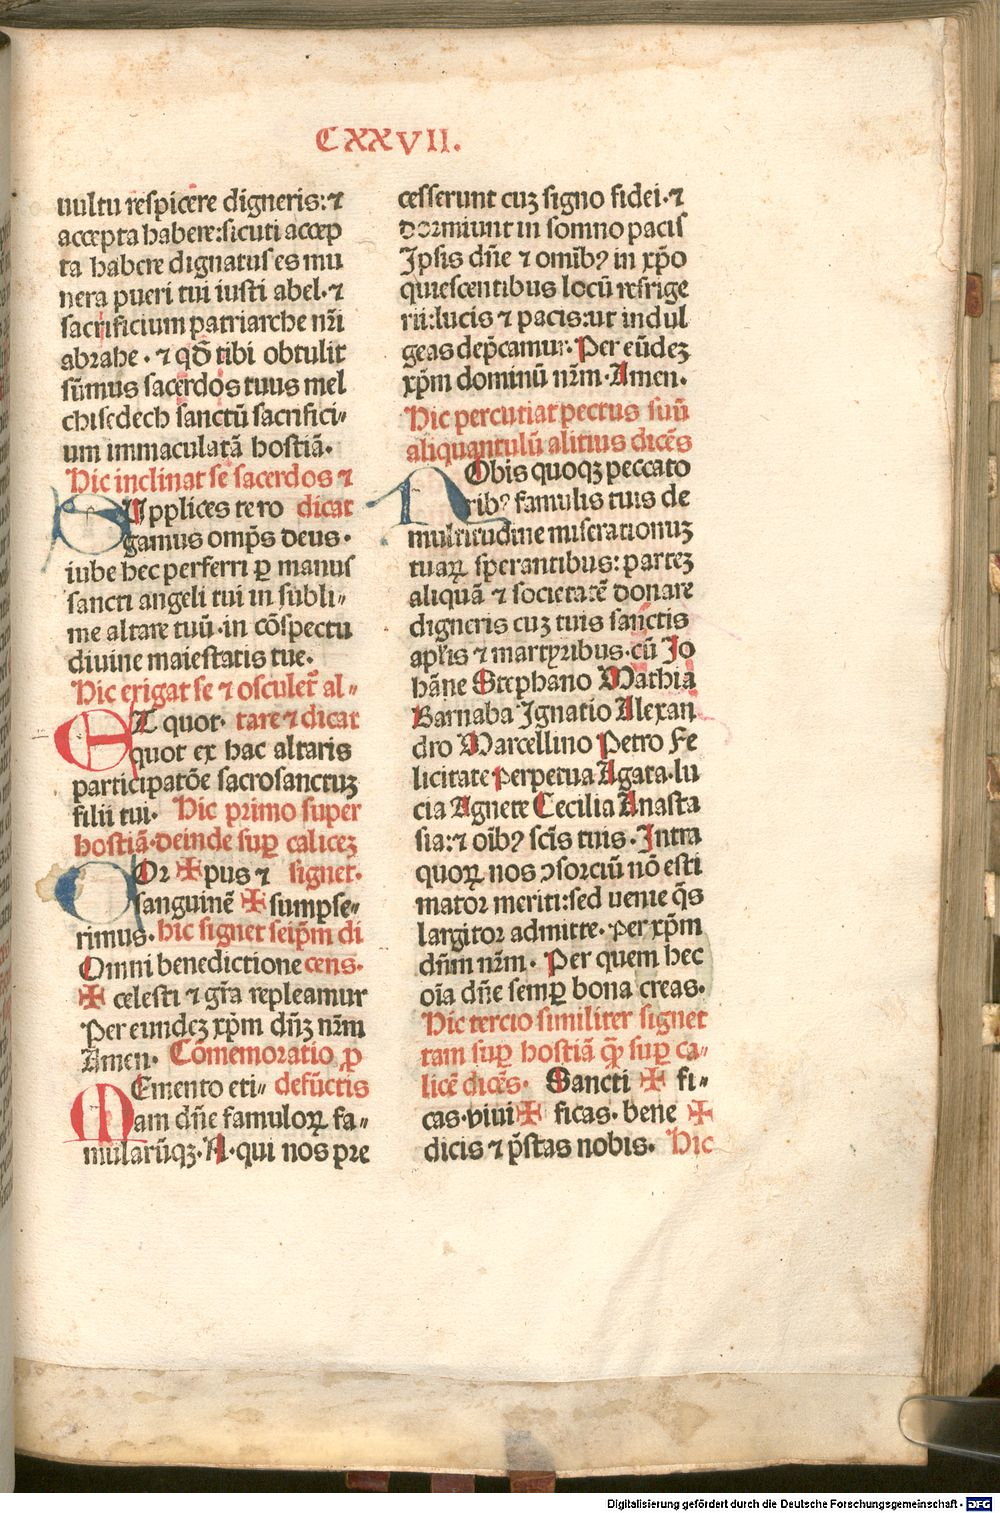 CXXVII.
uultu respicere digneris: ⁊
accepta habere: sicuti accep
ta habere dignatus es mu
nera pueri tui iusti abel. ⁊
sacrificium patriarche nr̃i
abrahe. ⁊ qđ tibi obtulit
sũmus sacerdos tuus mel
chisedech sanctũ sacrifici-
um immaculatã hostiã.
Hic inclinat se sacerdos ⁊
SUpplices te ro dicat
gamus omp̃s deus.
iube hec perferri ꝑ manus
sancti angeli tui in subli-
me altare tuũ. in cõspectu
diuine maiestatis tue.
Hic erigat se ⁊ osculet̃ al-
ET quot. tare ⁊ dicat
quot ex hac altaris
participatõe sacrosanctuꝫ
filii tui. Hic primo super
hostiã. deinde suꝑ caliceꝫ
COr ✠ pus ⁊ signet.
sanguinẽ ✠ sumpse-
rimus. hic signet seip̃m di
Omni benedictione cens.
✠ celesti ⁊ gr̃a repleamur
Per eundeꝫ xp̃m dñꝫ nr̃m
Amen. Cõmemoratio ꝓ
MEmento eti- defũctis
am dñe famuloꝝ fa-
mularũqꝫ. N. qui nos pre
cesserunt cuꝫ signo fidei. ⁊
dormiunt in somno pacis
Ipsis dñe ⁊ omibꝰ in xp̃o
quiescentibus locũ refrige
rii: lucis ⁊ pacis: ut indul
geas dep̃camur. Per eũdeꝫ
xp̃m dominũ nr̃m. Amen.
Hic percutiat pectus suũ
aliquantulũ altius dicẽs
NObis quoqꝫ peccato
ribꝰ famulis tuis de
multitudine miserationuꝫ
tuaꝝ sperantibus: parteꝫ
aliquã ⁊ societatẽ donare
digneris cuꝫ tuis sanctis
apl̃is ⁊ martyribus. cũ Jo
hãne Stephano Mathia
Barnaba Ignatio Alexan
dro Marcellino Petro Fe
licitate Perpetua Agata. lu
cia Agnete Cecilia Anasta
sia: ⁊ oĩbꝰ sc̃is tuis. Intra
quoꝝ nos ↄsorciũ nõ esti
mator meriti: sed uenie q̃s
largitor admitte. Per xp̃m
dñm nr̃m. Per quem hec
oĩa dñe semꝑ bona creas.
Hic tercio similiter signet
tam suꝑ hostiã q̃ suꝑ ca-
licẽ dicẽs. Sancti ✠ fi-
cas. viui ✠ ficas. bene ✠
dicis ⁊ p̃stas nobis. Hic
Digitalisierung gefördert durch die Deutsche Forschungsgemeinschaft - DFG